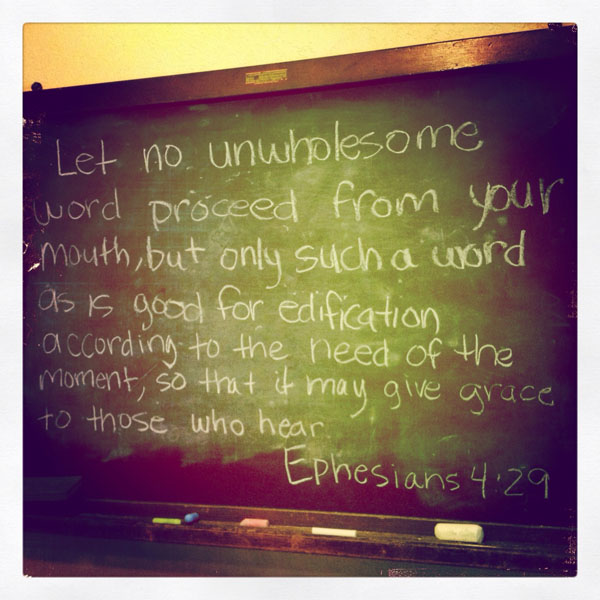 Let no unwholesome
word proceed from your
mouth, but only such a word
as is good for edification
according to the need of the
moment, so that it may give grace
to those who hear
Ephesians 4:29